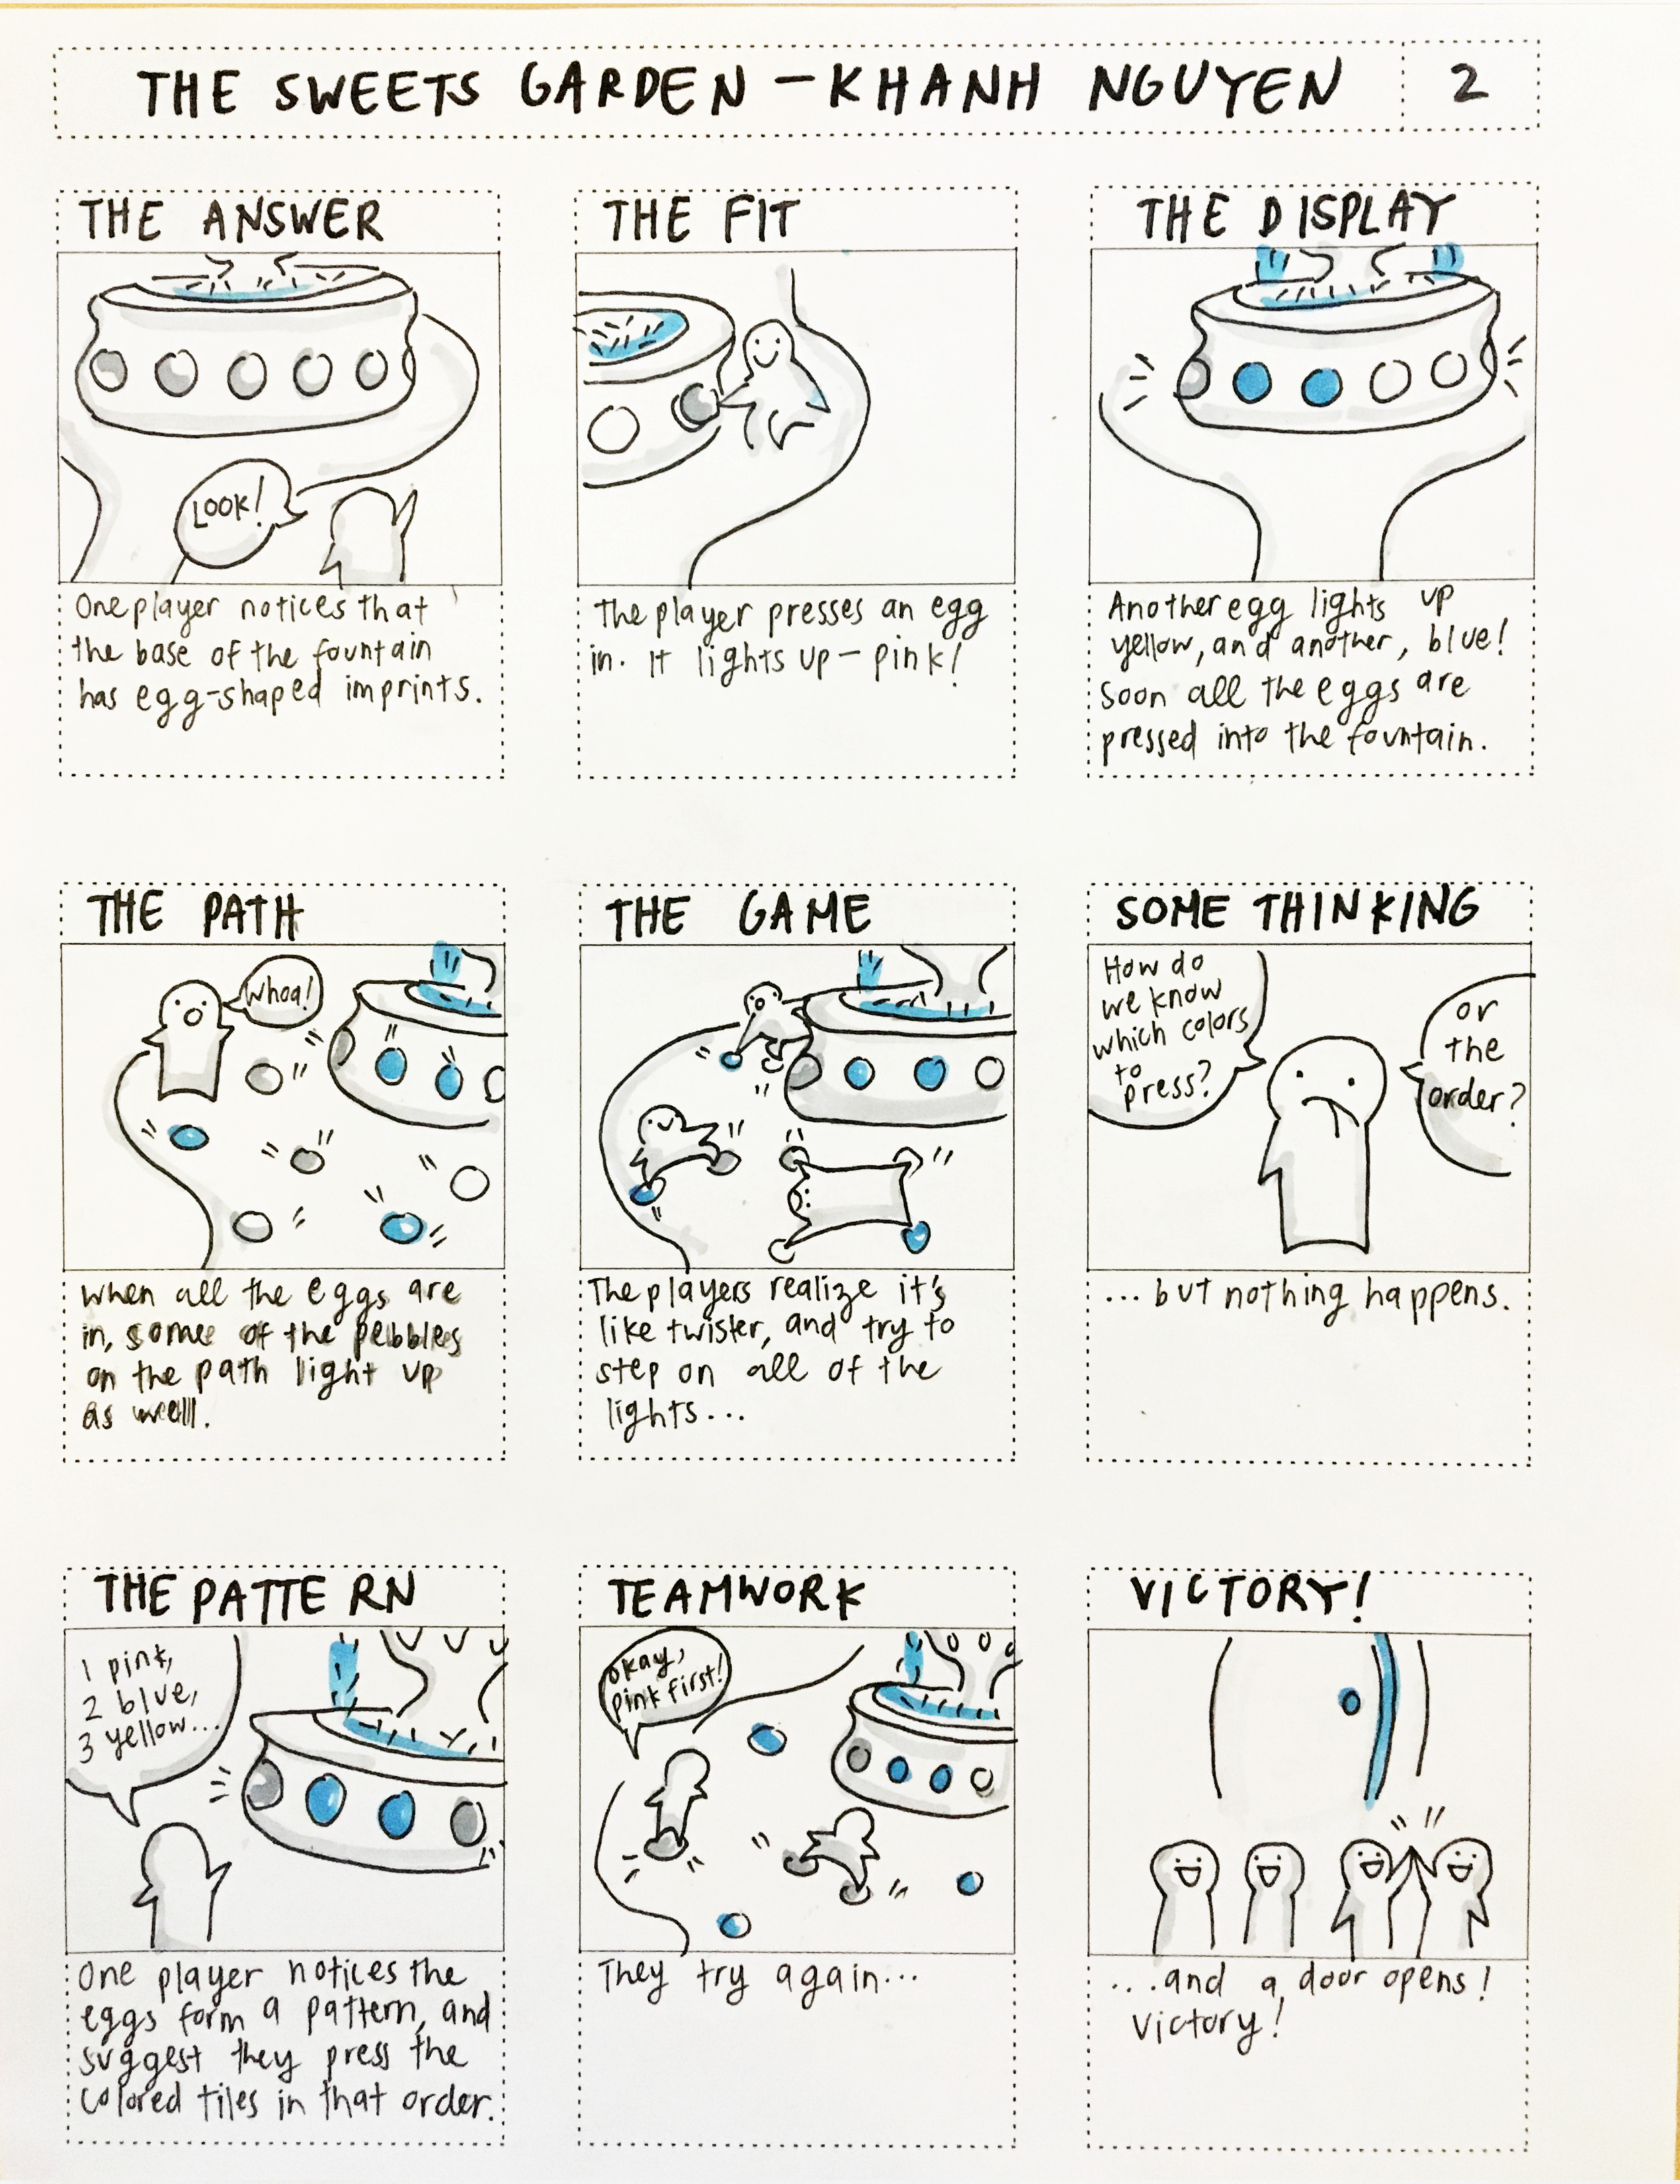 THE SWEETS GARDEN – KHANH NGUYEN 2
THE ANSWER
LOOK!
One player notices that
the base of the fountain
has egg-shaped imprints.
THE FIT
The player presses an egg
in. It lights up – pink!
THE DISPLAY
Another egg lights up
yellow, and another, blue!
Soon all the eggs are
pressed into the fountain.
THE PATH
Whoa!
When all the eggs are
in, some of the pebbles
on the path light up
as well.
THE GAME
The players realize it's
like twister, and try to
step on all of the
lights...
SOME THINKING
How do
we know
which colors
to
press?
or
the
order?
... but nothing happens.
THE PATTERN
1 pink,
2 blue,
3 yellow...
One player notices the
eggs form a pattern, and
suggest they press the
colored tiles in that order.
TEAMWORK
okay,
pink first!
They try again...
VICTORY!
...and a door opens!
Victory!